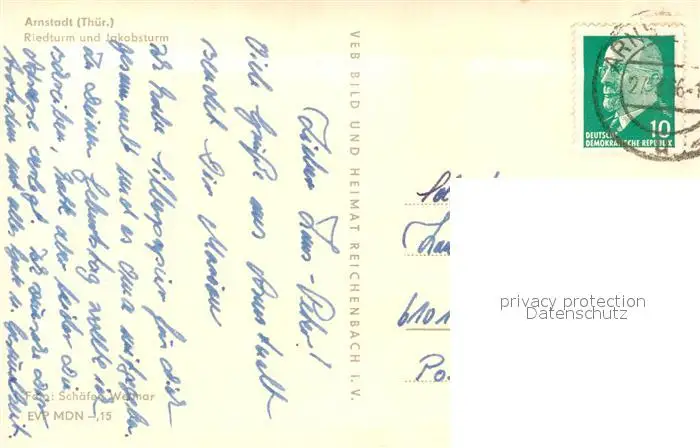 Arnstadt (Thür.)
Riedturm und Jakobsturm
Lieber Hans-Peter!
Viele Grüße aus Arnstadt
sendet Dir Marion
Ich habe Silberpapier für Dich
gesammelt und es Oma mitgegeben.
Zu Deinem Geburtstag wollte ich
schreiben, hatte aber leider die
Adresse verlegt. Ich wünsche Dir
trotzdem noch alles Gute u. Gesundheit.
Foto: Schäfer, Weimar
EVP MDN -,15
VEB BILD UND HEIMAT REICHENBACH i. V.
ARN
10
DEUTSCHE
DEMOKRATISCHE REPUBLIK
6101
Po
privacy protection
Datenschutz